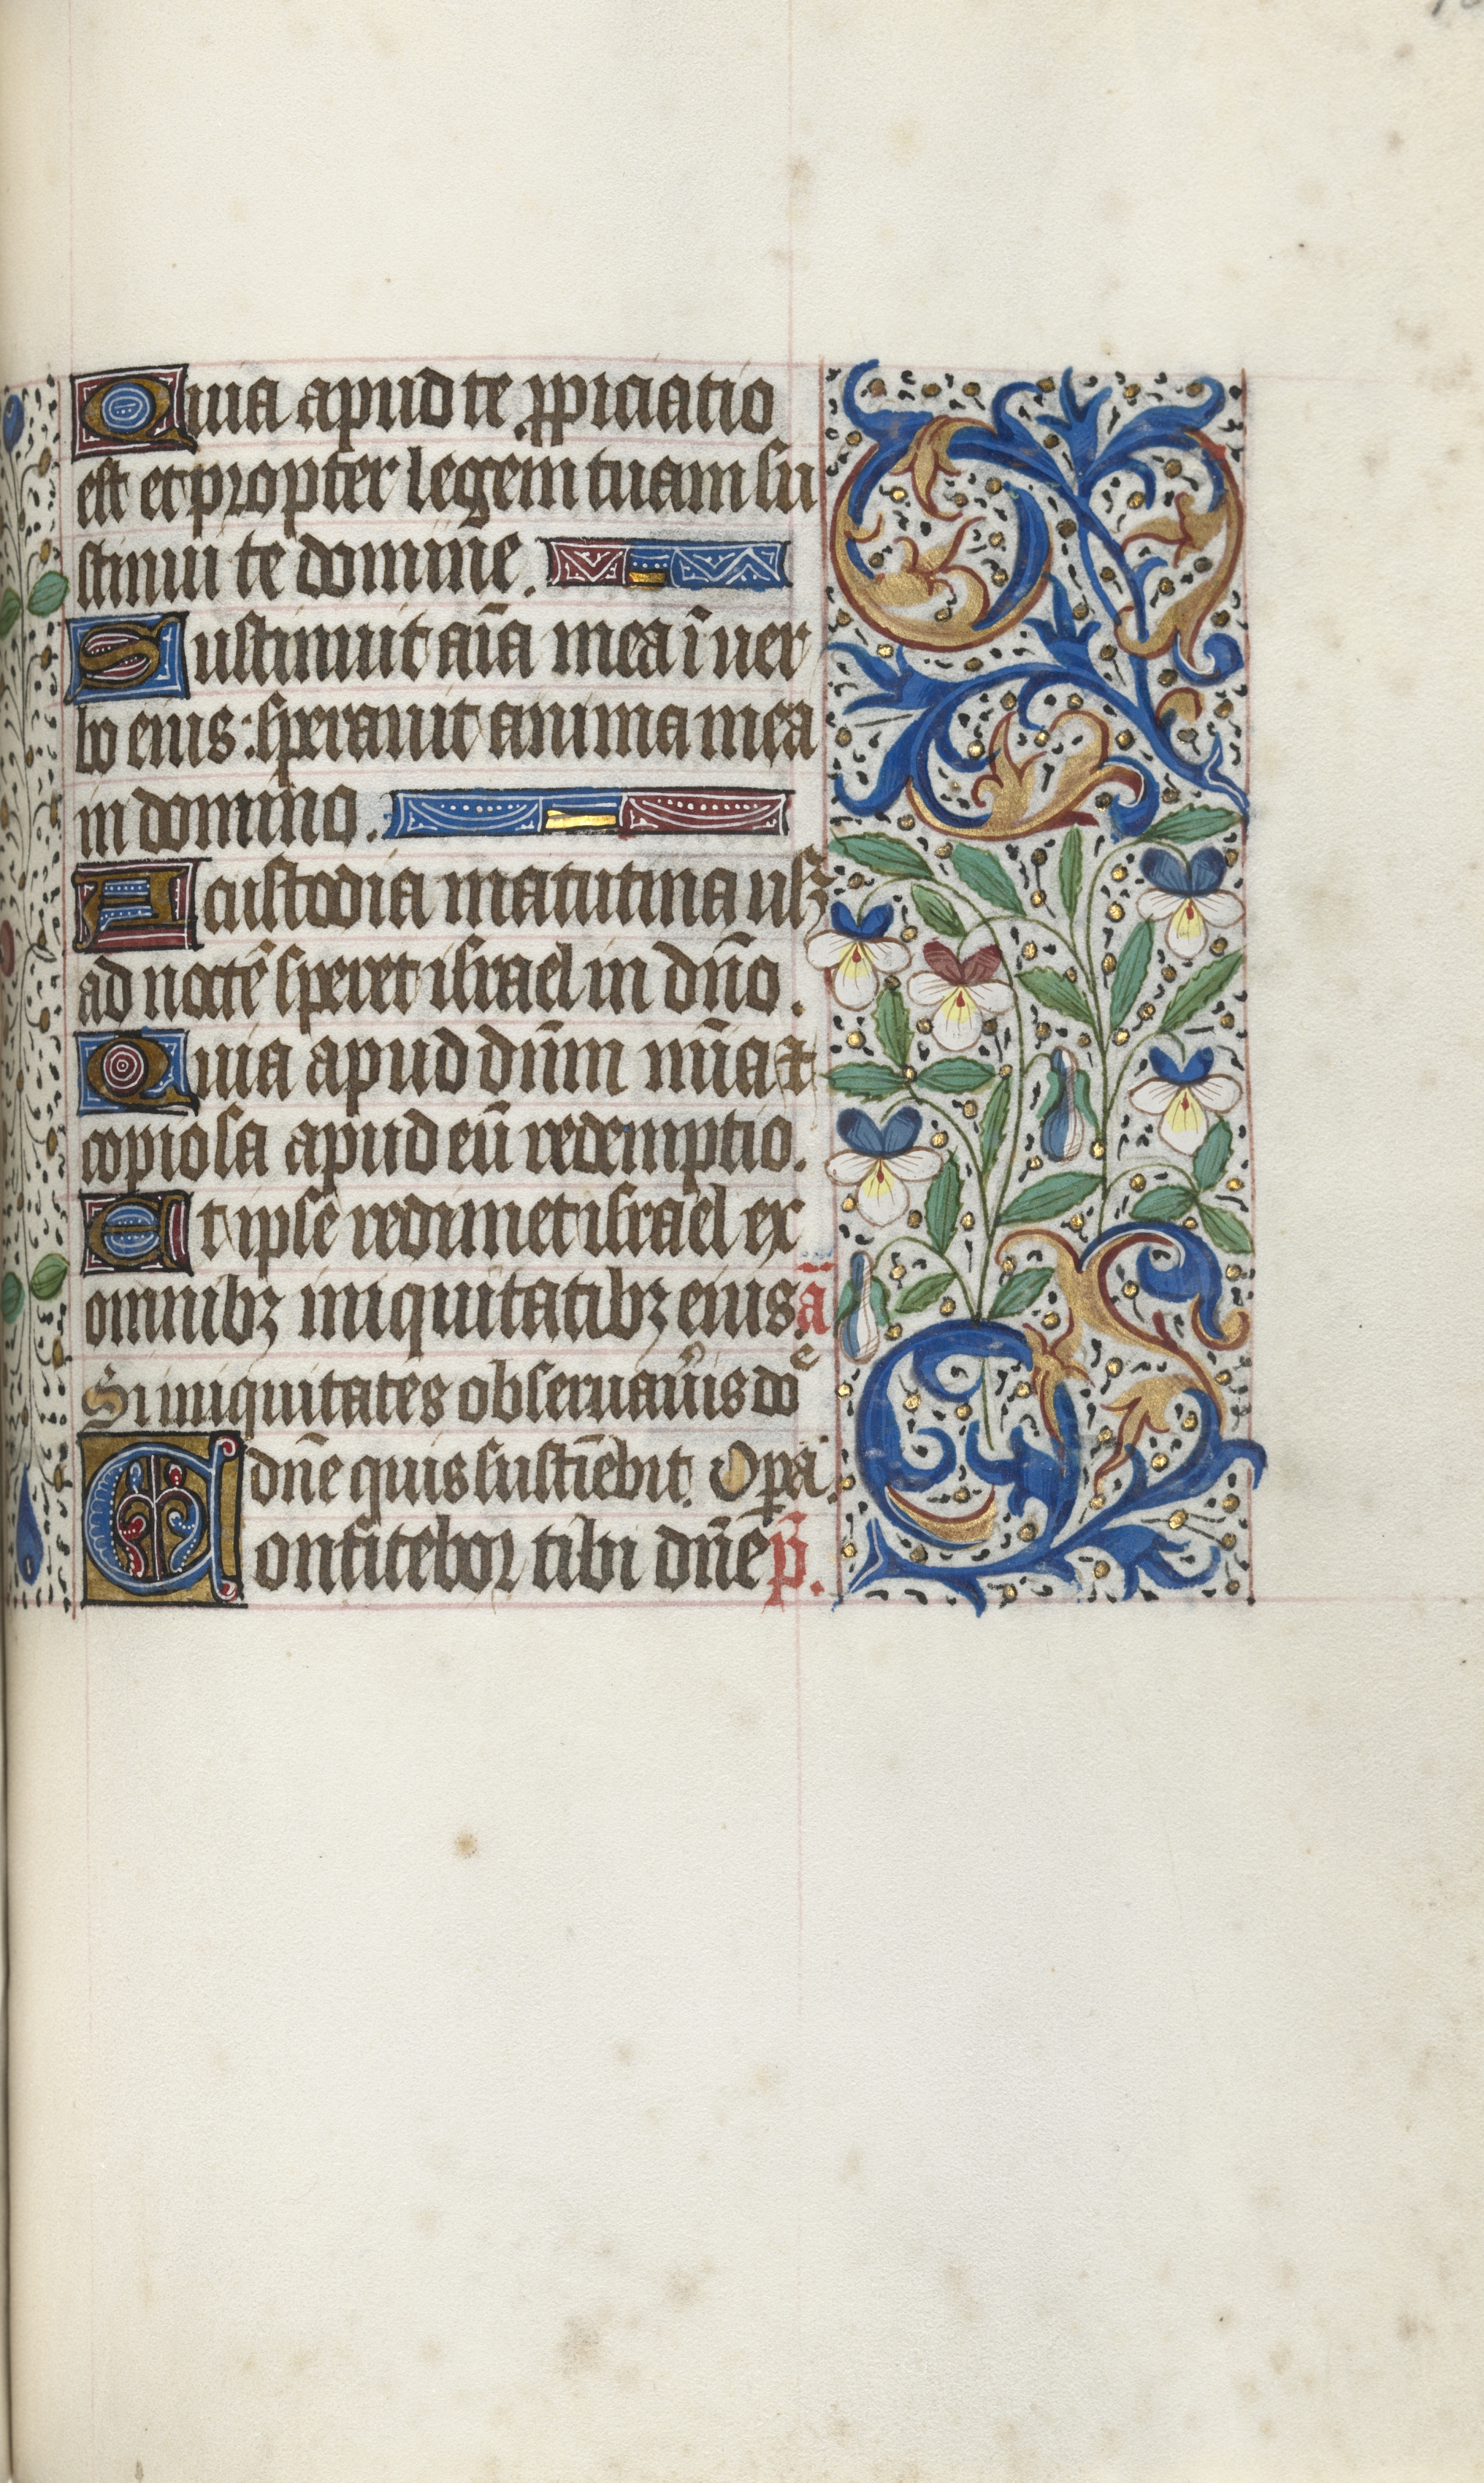 Quia apud te ꝓpiciatio
est et propter legem tuam su
stinui te domine.
Sustinuit aīa mea ī uer
bo eius: sperauit anima mea
in domino.
A custodia matutina usqꝫ
ad noctē speret israel in dn̄o.
Quia apud dn̄m mīa et
copiosa apud eū redemptio.
Et ipse redimet israel ex
omnibꝫ iniquitatibꝫ eius. ā
Si iniquitates obseruaūis doᵉ
dn̄e quis sustīebit. Opa.
Confitebor tibi dn̄e p̄.